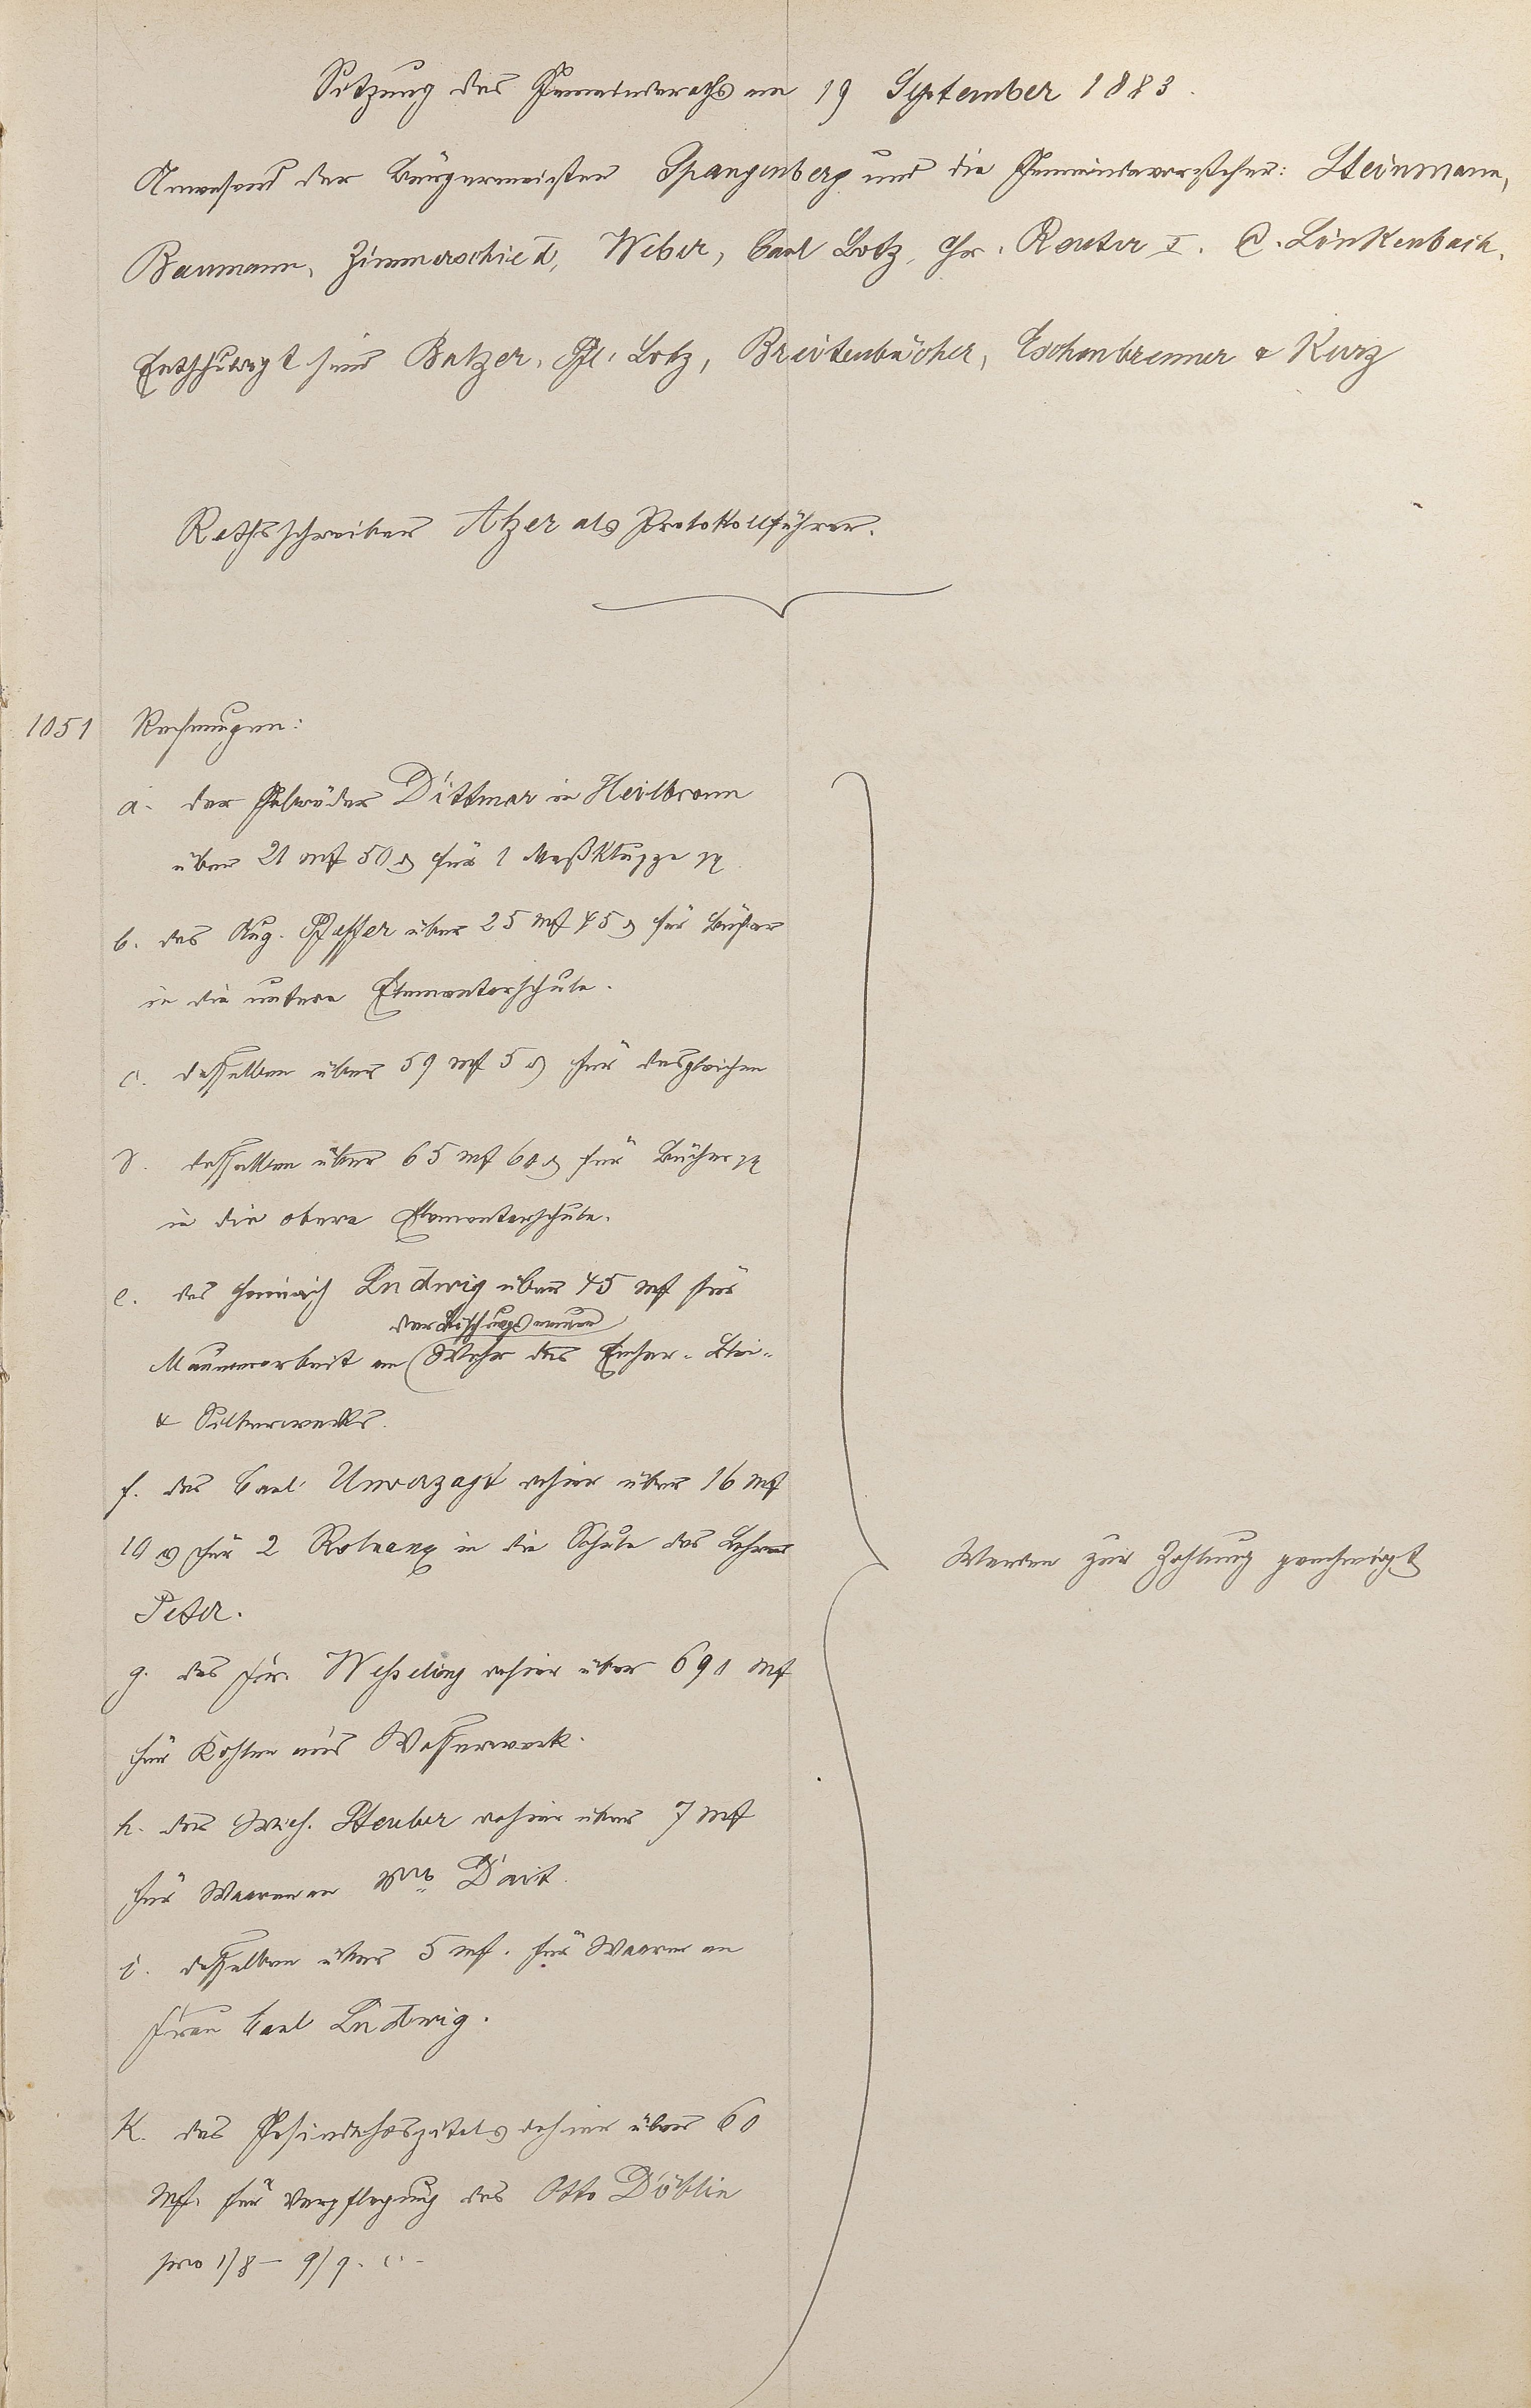 Sitzung des Gemeinderaths am 19 September 1883.
Anwesend der Bürgermeister Spangenberg und die Gemeindevorsteher: Steinmann,
Baumann, Zimmerschied, Weber, Carl Lotz, Chr. Reuter I. C. Linkenbach.
Entschuldigt sind Balzer, Ph. Lotz, Breitenbücher, Eschenbrenner & Kurz
Rathsschreiber Atzer als Protokollführer.
1051 Rechnungen:
a. der Gebrüder Dittmar in Heilbronn
über 21 Mk 50 ₰ für 1 Meßkluppe pp
b. des Aug. Pfeffer über 25 Mk 45 ₰ für Bücher
in die untere Elementarschule.
c. desselben über 59 Mk 5 ₰ für desgleichen
d. desselben über 65 Mk 60 ₰ für Bücher pp
in die obere Elementarschule.
e. des Heinrich Ludwig über 45 Mk für
der Böschungsmauer
Maurerarbeit am Wehr des Emser- Blei-
& Silberwerks.
f. des Carl Unverzagt dahier über 16 Mk
10 ₰ für 2 in die Schule des Lehrers
Peter.
g. des Fr. Wesseling dahier über 691 Mk
für Kosten aus Wasserwerk.
h. des Mich. Steuber dahier über 7 Mk
für Waaren an Wwe
i. desselben über 5 Mk. für Waaren an
Frau Carl Ludwig.
K. des Gesindehospitals dahier über 60
Mk. für Verpflegung des Otto Döblin
pro 1/8 – 9/9. c.
Werden zur Zahlung genehmigt